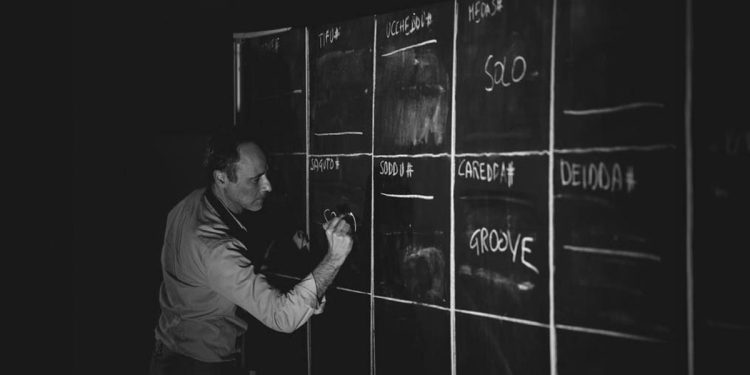 TIFU#
UCCHEDDU#
MEDAS#
SOLO
SAGUTO#
SODDU#
CAREDDA#
DEIDDA#
GROOVE